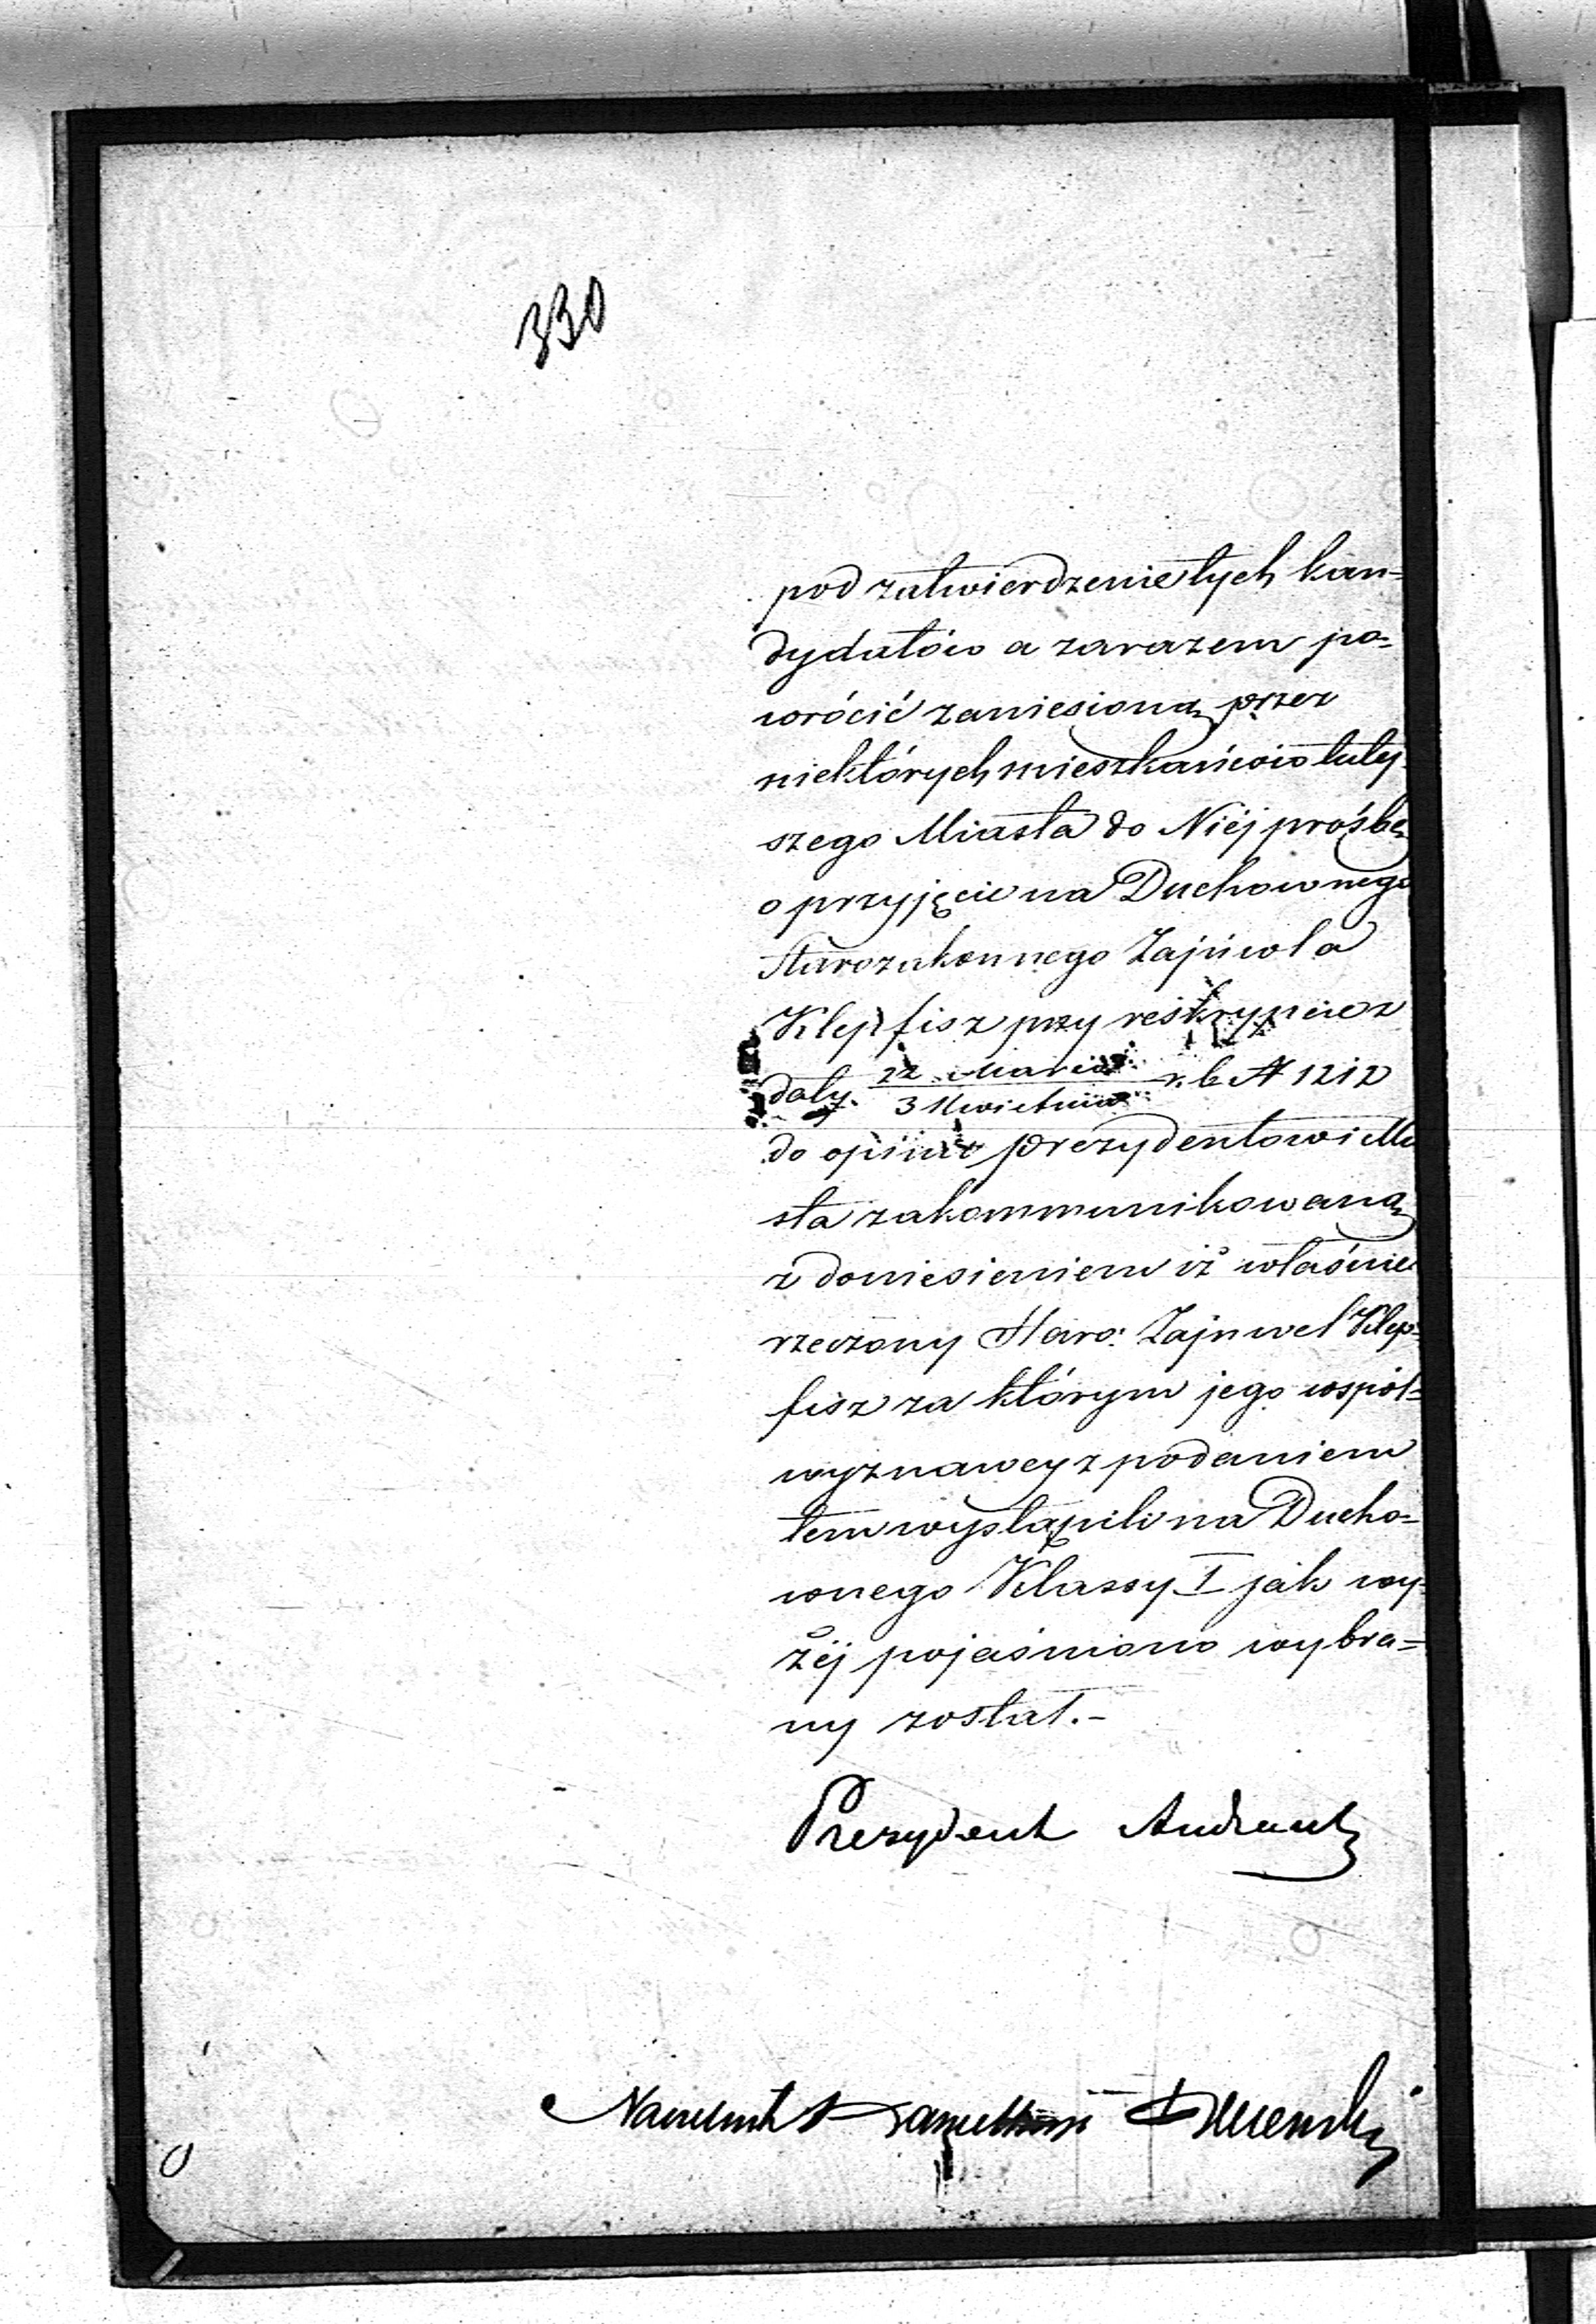 330
pod zatwierdzenie tych kan=
dydatów a zarazem po=
wrócić zaniesioną przez
niektórych mieszkańców tutej
szego Miasta do Niéj prośbę
o przyjęcie na Duchownego
Starozakonnego Zajnwla
Klepfisz przy reskrypcie z
daty 22 Marca / 3 Kwietnia r. b. N 1212
do opinii prezydentowi Mia
sta zakommunikowaną
z doniesieniem iż właśnie
rzeczony Staro: Zajnwel Klep=
fisz za którym jego współ=
wyznawcy z podaniem
tem wystąpili na Ducho=
wnego Klassy I jak wy=
żéj pojaśniono wybra=
ny został.-
Prezydent